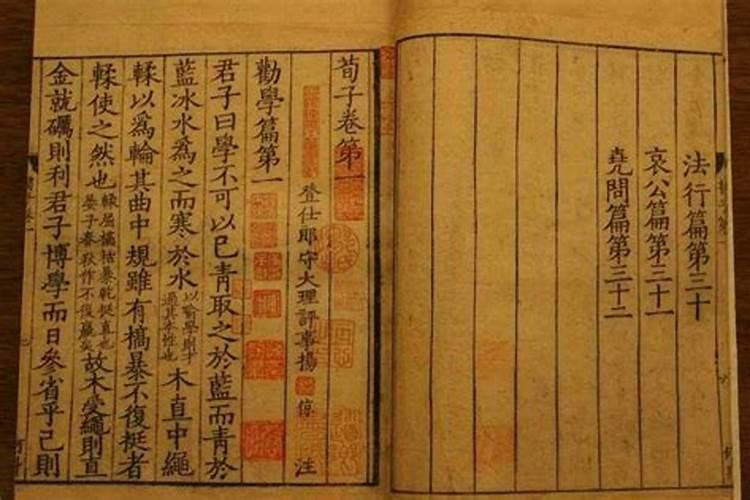 法行篇第三十
哀公篇第三十一
堯問篇第三十二
荀子卷第一
登仕郎守大理評事楊倞注
勸學篇第一
君子曰學不可以已青取之於藍而青於
藍冰水爲之而寒於水以喻學則才過其本性也木直中繩
輮以爲輪其曲中規雖有槁暴不復挺者
輮使之然也輮屈槁枯暴乾挺直也晏子春秋作不復羸矣故木受繩則直
金就礪則利君子博學而日參省乎己則